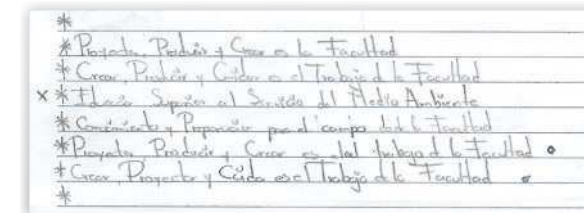 *
* Proyecta, Producir y Crear es la Facultad
* Crear, Producir y Cuidar es el Trabajo d la Facultad
x * Superior al Servicio del Medio Ambiente
* Conocimiento y Preparación para el campo la Facultad
* Proyecta Producir y Crear es del trabajo d la Facultad •
* Crear, Proyectar y Cuida es el Trabajo d la Facultad •
*